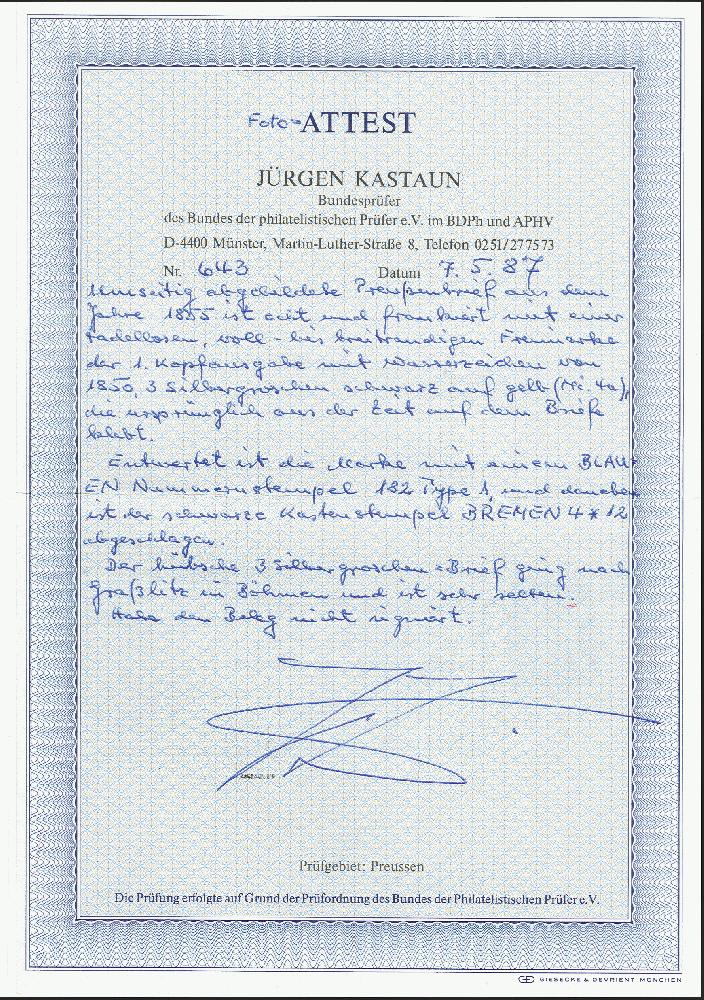 Foto-ATTEST
JÜRGEN KASTAUN
Bundesprüfer
des Bundes der philatelistischen Prüfer e.V. im BDPh und APHV
D-4400 Münster, Martin-Luther-Straße 8, Telefon 0251/277573
Nr. 643 Datum 7.5.87
Umseitig abgebildete Preußenbrief aus dem
Jahre 1855 ist echt und frankiert mit einer
tadellosen, voll- bis breitrandigen Freimarke
der 1. Kopfausgabe mit Wasserzeichen von
1850, 3 Silbergroschen schwarz auf gelb (Mi. 4a),
die ursprünglich aus der Zeit auf dem Briefe
klebt.
Entwertet ist die Marke mit einem BLAU-
EN Nummernstempel 182 Type 1, und daneben
ist der schwarze Kastenstempel BREMEN 4 * 12
abgeschlagen.
Der hübsche 3 Silbergroschen-Brief ging nach
Graßlitz in Böhmen und ist sehr selten.
Habe den Beleg nicht signiert.
Prüfgebiet: Preussen
Die Prüfung erfolgte auf Grund der Prüfordnung des Bundes der Philatelistischen Prüfer e.V.
GIESECKE & DEVRIENT MÜNCHEN